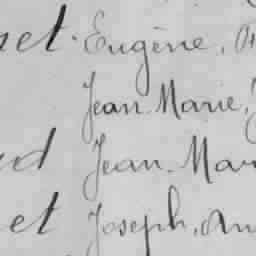 Eugène,
Jean Marie,
Jean Mar
et Joseph, An